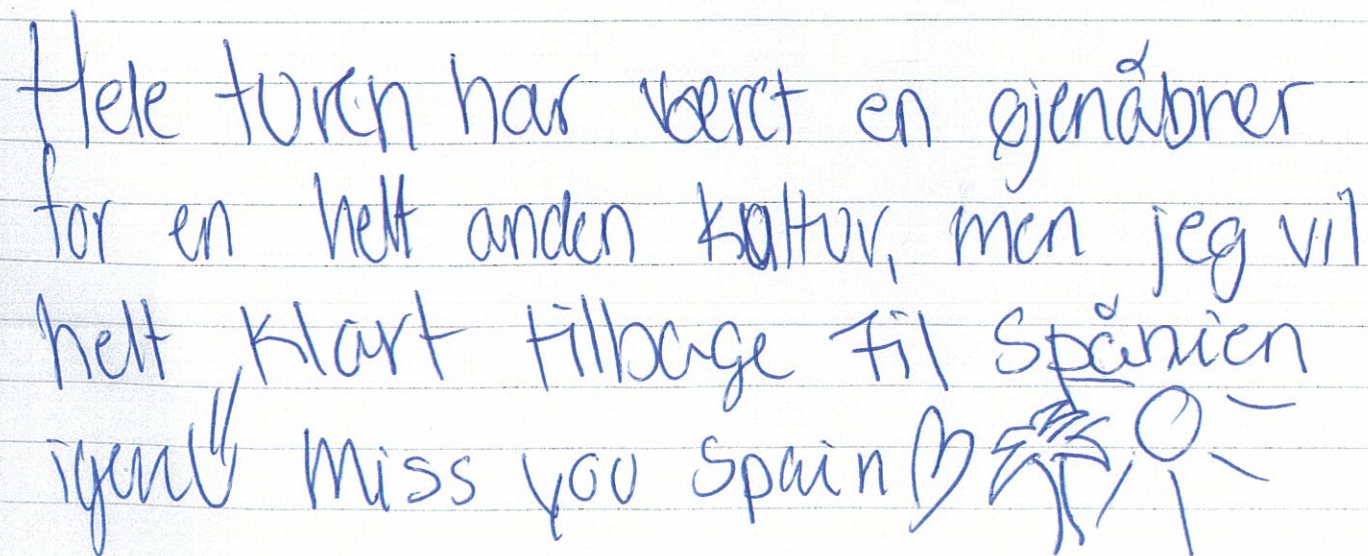 Hele turen har været en øjenåbner
for en helt anden kultur, men jeg vil
helt klart tilbage til Spånien
igen!! Miss you Spain♡